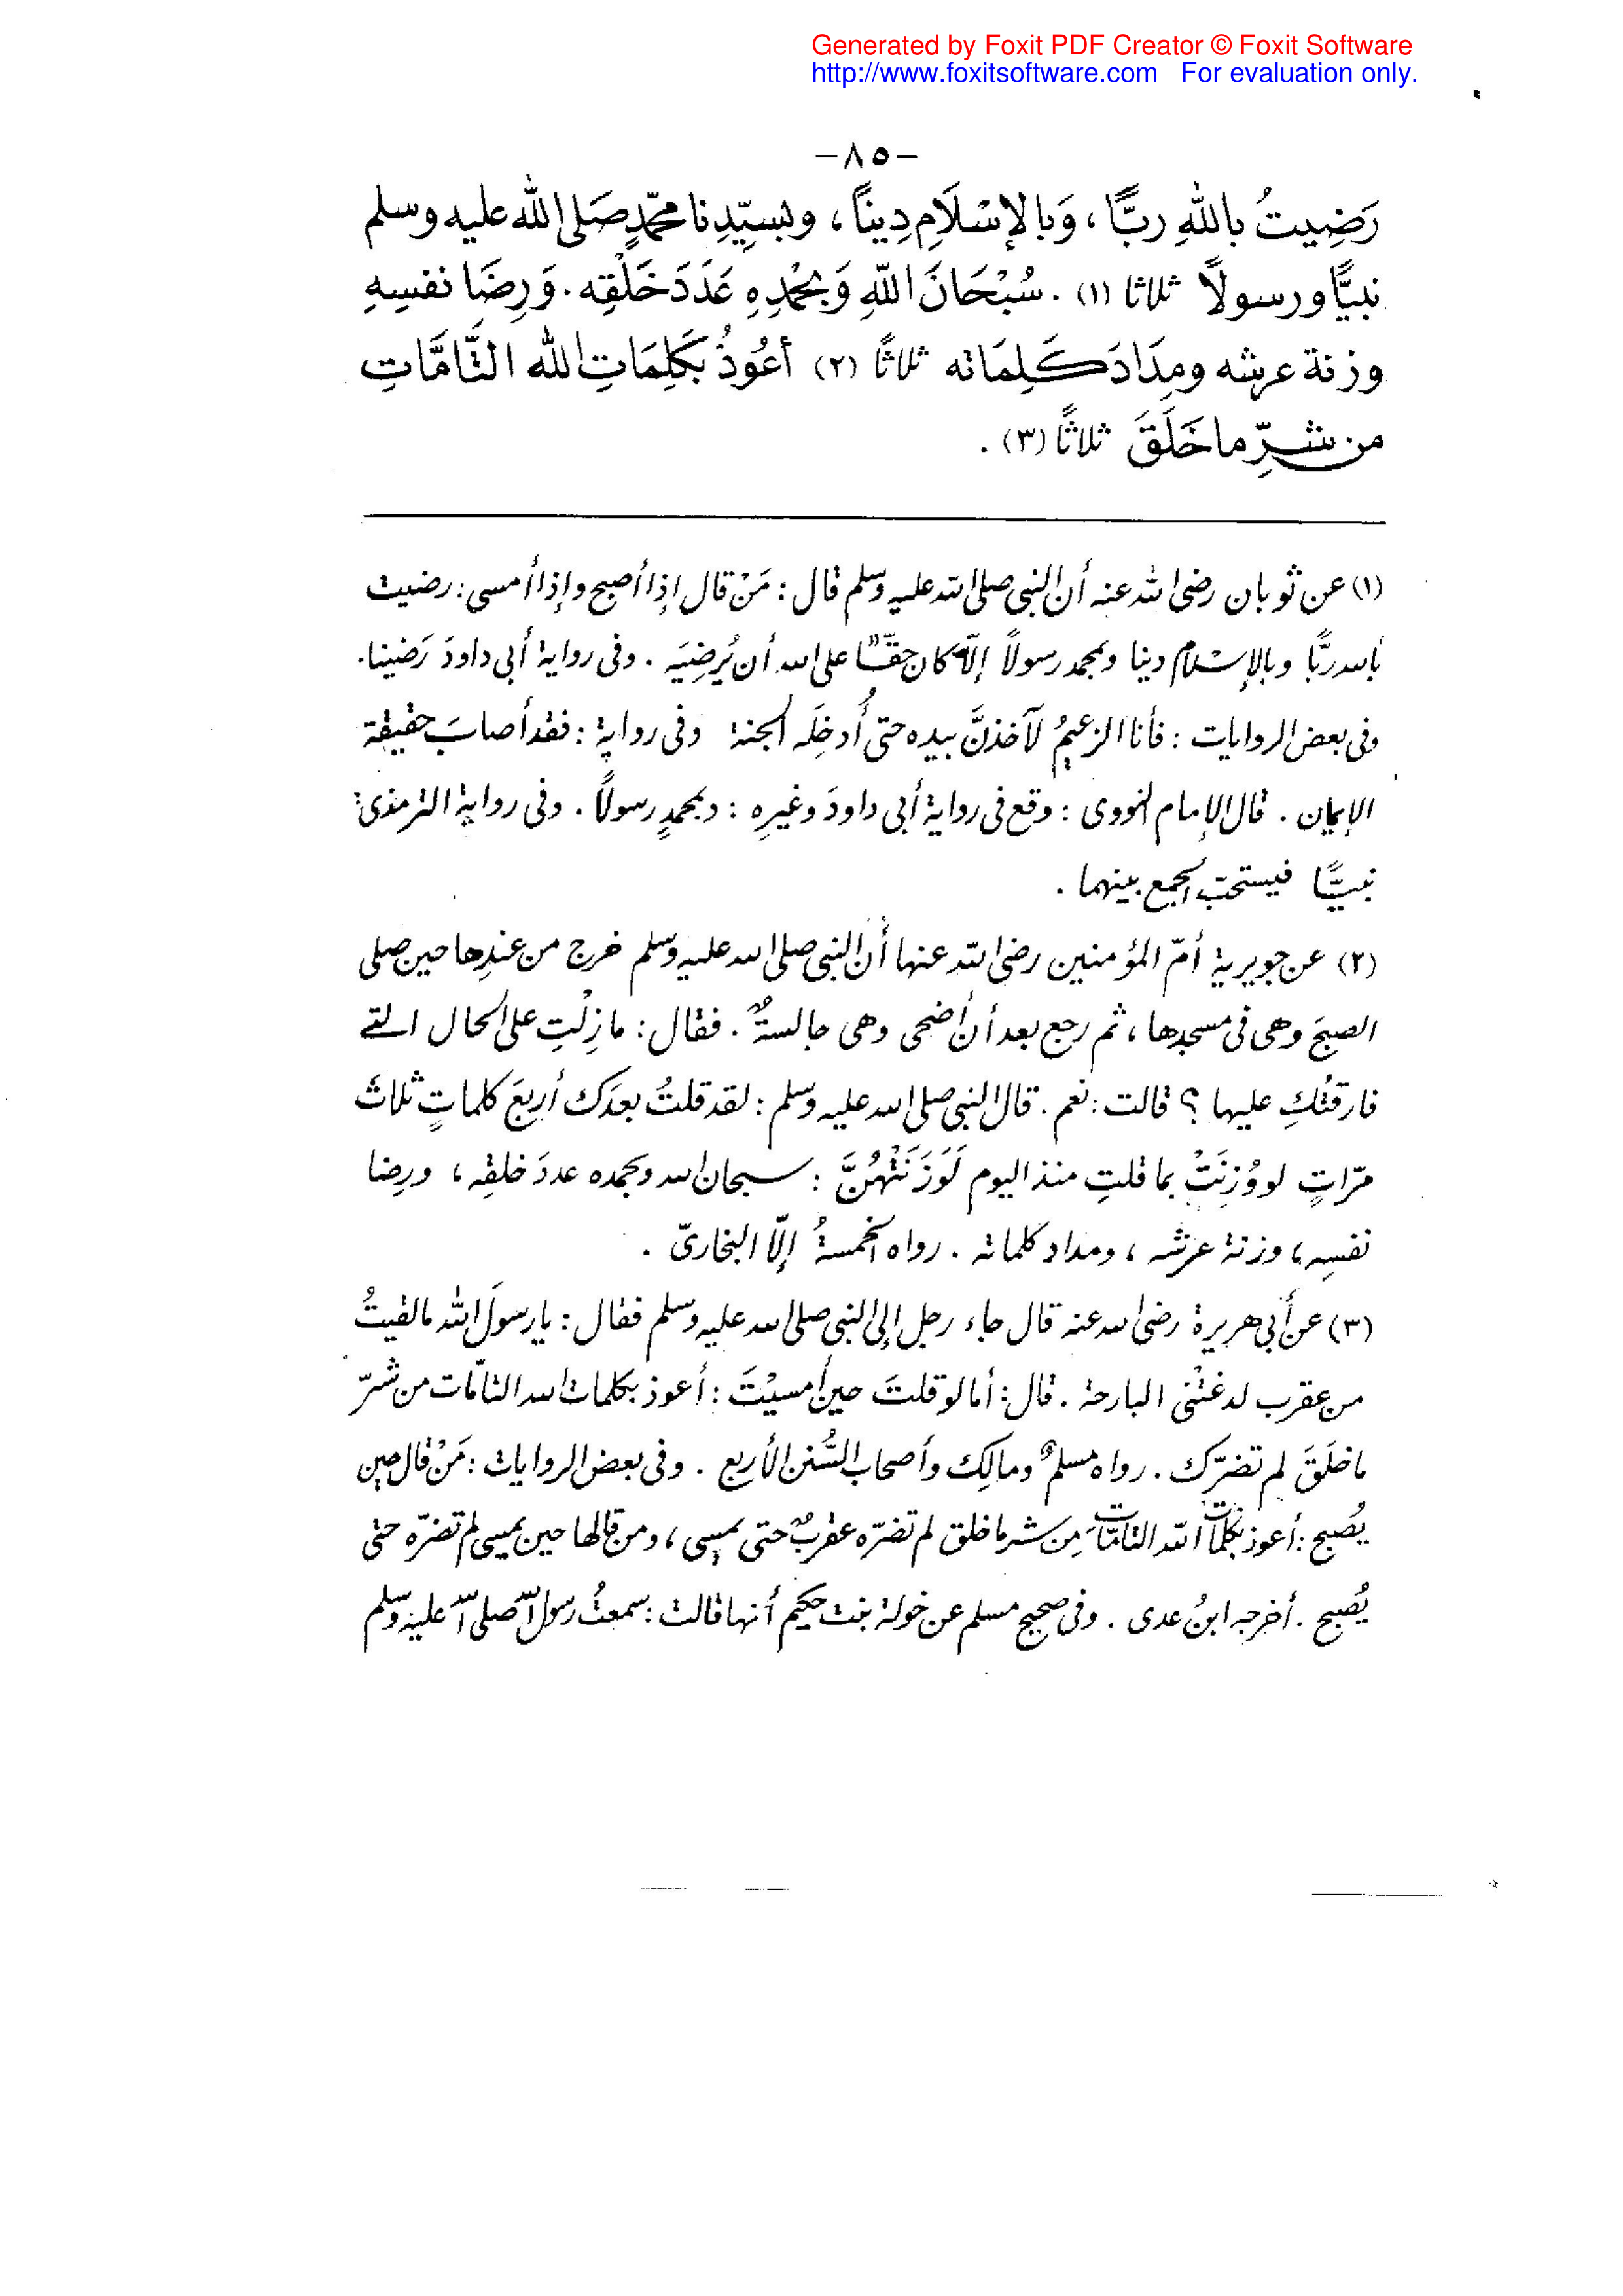 Generated by Foxit PDF Creator © Foxit Software
http://www.foxitsoftware.com For evaluation only.
-٨٥-
رَضِيتُ بِاللهِ ربًّا ، وَبالإسْلَامِ دِيناً ، وبسيِّدِنا محمّدٍ صَلى الله عليه وسلم
نبيًّا ورسولاً ثلاثا (١) . سُبْحَانَ اللهِ وَبحمْدِهِ عَدَدَ خَلْقِه . وَرِضَا نفسِهِ
وزنة عرشه ومِدَادَ كَلِمَاته ثلاثًا (٢) أعُوذُ بكَلِمَاتِ الله التَّامَّاتِ
من شرِّ ما خَلَقَ ثلاثًا (٣) .
(١) عن ثوبان رضى الله عنه أن النبى صلى الله عليه وسلم قال : مَنْ قال إذا أصبح وإذا أمسى : رضيت
بالله ربًّا وبالإسلام دينا وبمحمد رسولاً إلّا كان حقّاً على الله أن يُرضِيَه . وفى رواية أبى داودَ رَضينا .
وفى بعض الروايات : فأنا الزعيمُ لآخذنَّ بيده حتى أُدخِلَه الجنة وفى رواية : فقد أصابَ حقيقة
الإيمان . قال الإمام النووى : وقع فى رواية أبى داودَ وغيرِه : وبمحمدٍ رسولاً . وفى رواية الترمذى :
نبيًّا فيستحب الجمع بينهما .
(٢) عن جويرية أمّ المؤمنين رضى الله عنها أن النبى صلى الله عليه وسلم خرج من عندِها حين صلى
الصبحَ وهى فى مسجدها ، ثم رجع بعد أن أضحى وهى جالسةٌ . فقال : ما زِلْتِ على الحال التى
فارقتُكِ عليها ؟ قالت : نعم . قال النبى صلى الله عليه وسلم : لقد قلتُ بعدَك أربعَ كلماتٍ ثلاثَ
مرّاتٍ لو وُزِنَتْ بما قلتِ منذ اليوم لَوَزَنَتْهُنَّ : سبحان الله وبحمده عددَ خلقِه ، ورِضا
نفسِه ، وزنة عرشه ، ومداد كلماته . رواه الخمسةُ إلّا البخارىّ .
(٣) عن أبى هريرة رضى الله عنه قال جاء رجل إلى النبى صلى الله عليه وسلم فقال : يا رسولَ الله ما لقيتُ
من عقرب لدغتْنى البارحة . قال : أما لو قلتَ حين أمسيْتَ : أعوذ بكلمات الله التامّات من شرّ
ما خلَقَ لم تضرّك . رواه مسلمٌ ومالِك وأصحاب السُّنن الأربع . وفى بعض الروايات : مَنْ قال حين
يُصبح : أعوذ بكلمات الله التامّات مِن شر ما خلق لم تضرّه عقربٌ حتى يمسى ، ومن قالها حين يمسى لم تضرّه حتى
يُصبح . أخرجه ابنُ عدى . وفى صحيح مسلم عن خولة بنت حكيم أنها قالت : سمعتُ رسول الله صلى الله عليه وسلم